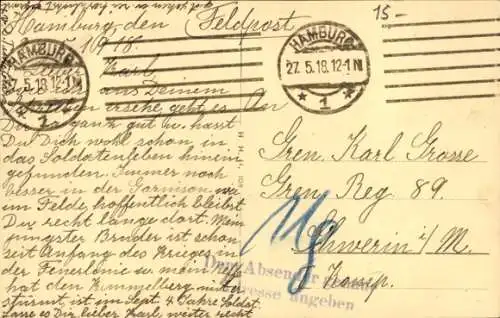 Hamburg, den
Feldpost
15-
HAMBURG
27.5.18.12-1N
* 1 *
HAMBURG
27.5.18.12-1N
* 1 *
Karl
aus Deinem
ersehe geht es
Dir ganz gut u. hast
Du Dich wohl schon in
das Soldatenleben hinein
gefunden. Immer noch
besser in der Garnison wie
im Felde hoffentlich bleibst
Du recht lange dort. Mein
jüngster Bruder ist schon
seit Anfang des Krieges in
der Feuerlinie u. mein
hat den Kemmelberg mitge
stürmt, ist im Sept. 4 Jahre Soldat.
Lass es Dir lieber Karl weiter recht
An
Gren. Karl Grosse
Gren. Reg 89.
Schwerin i/M.
Komp.
Dem Absender
Adresse angeben